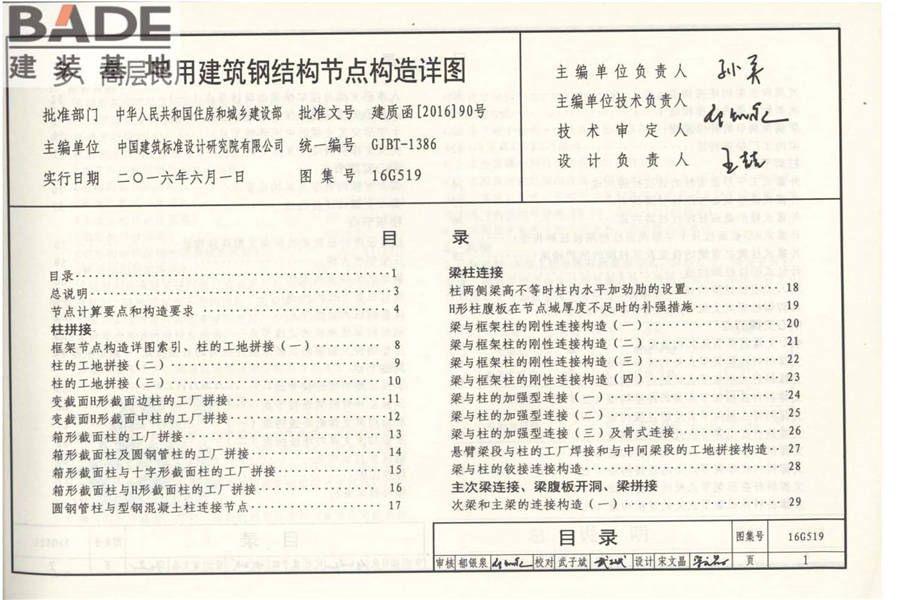 BADE
建装基地
多、高层民用建筑钢结构节点构造详图
批准部门 中华人民共和国住房和城乡建设部 批准文号 建质函[2016]90号
主编单位 中国建筑标准设计研究院有限公司 统一编号 GJBT-1386
实行日期 二〇一六年六月一日 图集号 16G519
主编单位负责人
主编单位技术负责人
技术审定人
设计负责人
目 录
目录 1
总说明 3
节点计算要点和构造要求 4
柱拼接
框架节点构造详图索引、柱的工地拼接（一） 8
柱的工地拼接（二） 9
柱的工地拼接（三） 10
变截面H形截面边柱的工厂拼接 11
变截面H形截面中柱的工厂拼接 12
箱形截面柱的工厂拼接 13
箱形截面柱及圆钢管柱的工厂拼接 14
箱形截面柱与十字形截面柱的工厂拼接 15
箱形截面柱与H形截面柱的工厂拼接 16
圆钢管柱与型钢混凝土柱连接节点 17
梁柱连接
柱两侧梁高不等时柱内水平加劲肋的设置 18
H形柱腹板在节点域厚度不足时的补强措施 19
梁与框架柱的刚性连接构造（一） 20
梁与框架柱的刚性连接构造（二） 21
梁与框架柱的刚性连接构造（三） 22
梁与框架柱的刚性连接构造（四） 23
梁与柱的加强型连接（一） 24
梁与柱的加强型连接（二） 25
梁与柱的加强型连接（三）及骨式连接 26
悬臂梁段与柱的工厂焊接和与中间梁段的工地拼接构造 27
梁与柱的铰接连接构造 28
主次梁连接、梁腹板开洞、梁拼接
次梁和主梁的连接构造（一） 29
目录 图集号 16G519
审核 郁银泉 校对 武子斌 设计 宋文晶 页 1